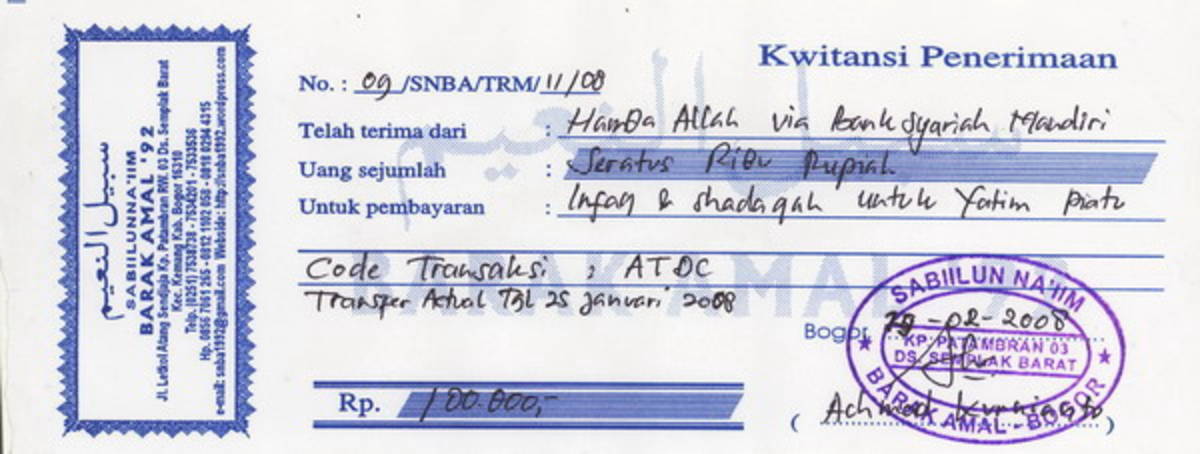 سبيل النعيم
SABIILUNNA'IIM
BARAK AMAL '92
Jl. Letkol Atang Sendjaja Kp. Patambran RW. 03 Ds. Semplak Barat
Kec. Kemang Kab. Bogor 1610
Telp. (0251) 7538738 - 7534201 - 7533536
Hp. 0856 7061 265 - 0812 1102 058 - 0818 0294 4315
e-mail: snba1992@gmail.com Webside: http://snba1992.wordpress.com
Kwitansi Penerimaan
No. : 09 /SNBA/TRM/ 11/08
Telah terima dari : Hamba Allah via Bank Syariah Mandiri
Uang sejumlah : Seratus Ribu Rupiah
Untuk pembayaran : Infaq & shadaqah untuk Yatim piatu
Code Transaksi : ATDC
Transper Actual Tgl 25 januari 2008
سبيل النعيم
BARAK AMAL '92
Bogor, 29-02-2008
SABIILUN NA'IIM
KP. PATAMBRAN 03
DS. SEMPLAK BARAT
BARAK AMAL - BOGOR
Rp. 100.000,-
( Achmad )